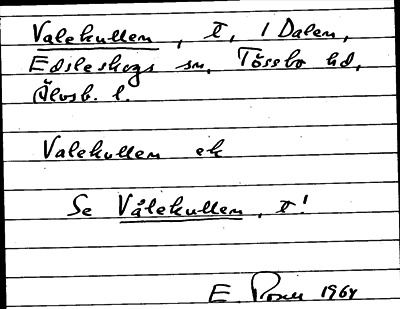 Valekullen, t, 1 Dalen,
Edsleskogs sn, Tössbo hd,
Älvsb. l.
Valekullen ek
Se Vålekullen, t!
E 1964